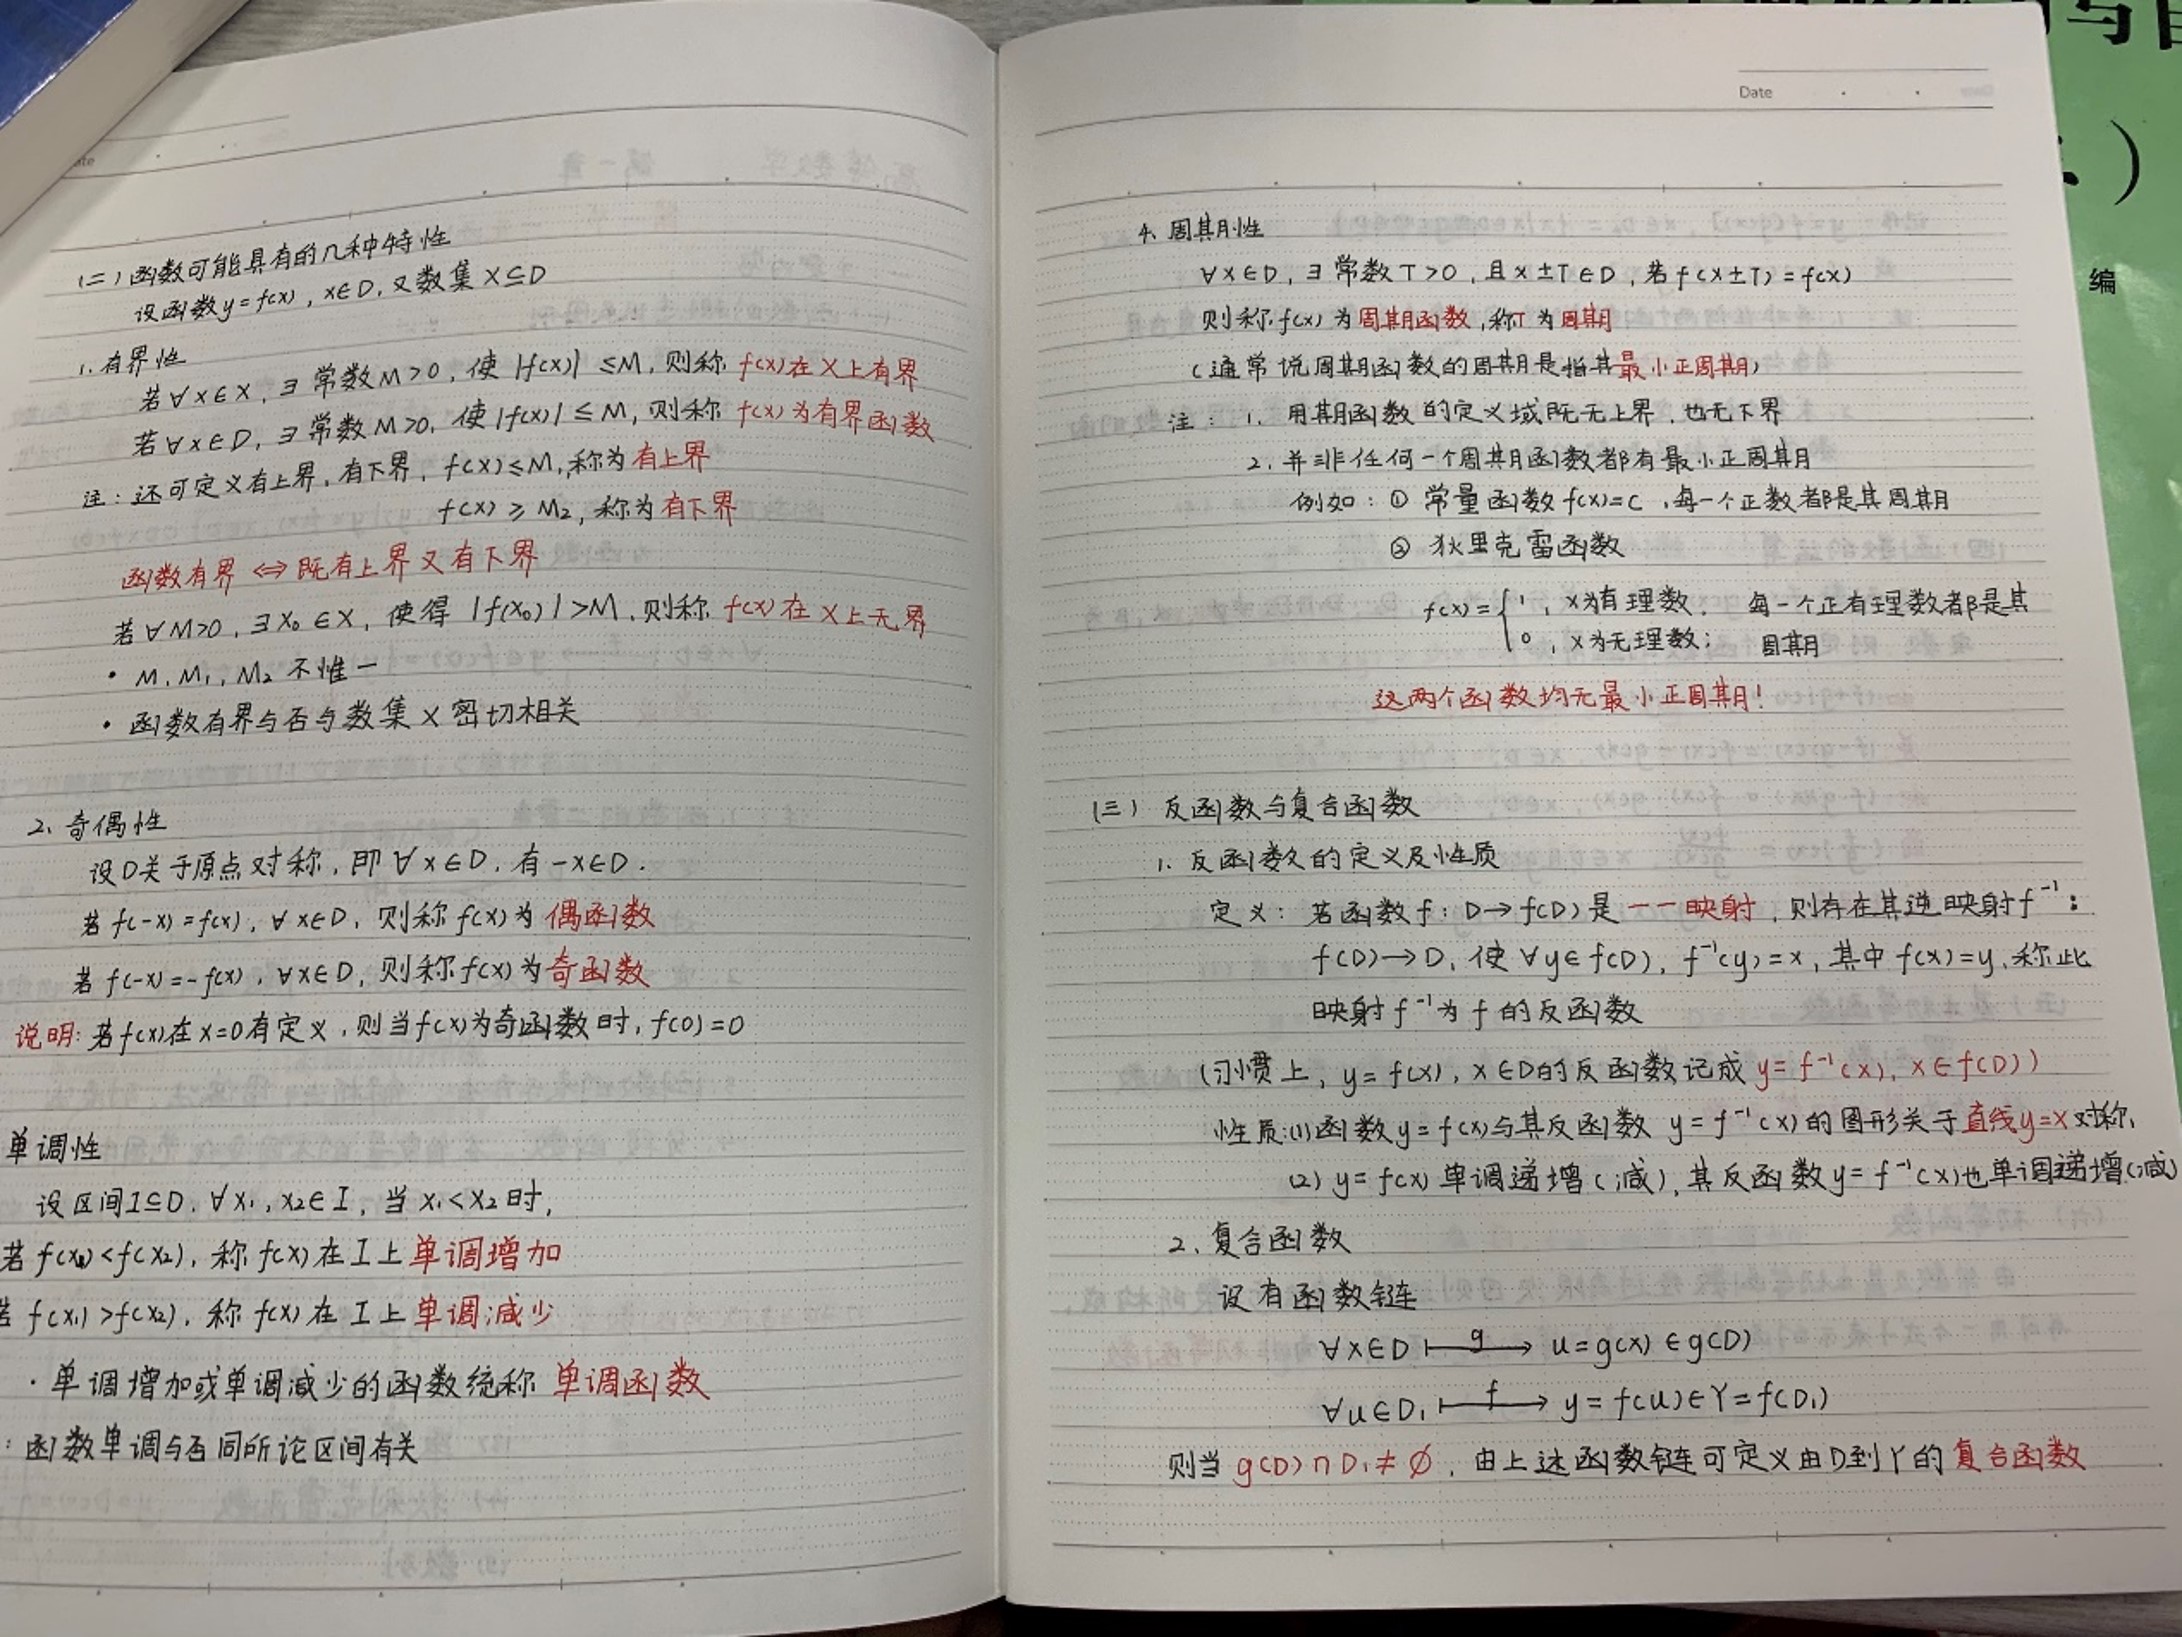 (二) 函数可能具有的几种特性
设函数y=f(x), x∈D, 又数集X⊆D
1. 有界性
若∀x∈X, ∃常数M>0, 使|f(x)|≤M, 则称f(x)在X上有界
若∀x∈D, ∃常数M>0, 使|f(x)|≤M, 则称f(x)为有界函数
注: 还可定义有上界, 有下界, f(x)≤M, 称为有上界
f(x)≥M₂, 称为有下界
函数有界⇔既有上界又有下界
若∀M>0, ∃x₀∈X, 使得|f(x₀)|>M, 则称f(x)在X上无界
· M, M₁, M₂不惟一
· 函数有界与否与数集X密切相关
2. 奇偶性
设D关于原点对称, 即∀x∈D, 有-x∈D.
若f(-x)=f(x), ∀x∈D, 则称f(x)为偶函数
若f(-x)=-f(x), ∀x∈D, 则称f(x)为奇函数
说明: 若f(x)在x=0有定义, 则当f(x)为奇函数时, f(0)=0
单调性
设区间I⊆D, ∀x₁, x₂∈I, 当x₁<x₂时,
若f(x₁)<f(x₂), 称f(x)在I上单调增加
若f(x₁)>f(x₂), 称f(x)在I上单调减少
· 单调增加或单调减少的函数统称单调函数
: 函数单调与否同所论区间有关
Date
4. 周期性
∀x∈D, ∃常数T>0, 且x±T∈D, 若f(x±T)=f(x)
则称f(x)为周期函数, 称T为周期
(通常说周期函数的周期是指其最小正周期)
注: 1. 周期函数的定义域既无上界, 也无下界
2. 并非任何一个周期函数都有最小正周期
例如: ① 常量函数f(x)=C, 每一个正数都是其周期
② 狄里克雷函数
f(x)={1, x为有理数, 每一个正有理数都是其
0, x为无理数; 周期
这两个函数均无最小正周期!
(三) 反函数与复合函数
1. 反函数的定义及性质
定义: 若函数f: D→f(D)是一一映射, 则存在其逆映射f⁻¹:
f(D)→D, 使∀y∈f(D), f⁻¹(y)=x, 其中f(x)=y, 称此
映射f⁻¹为f的反函数
(习惯上, y=f(x), x∈D的反函数记成y=f⁻¹(x), x∈f(D))
性质:(1)函数y=f(x)与其反函数 y=f⁻¹(x)的图形关于直线y=x对称,
(2) y=f(x)单调递增(减), 其反函数y=f⁻¹(x)也单调递增(减)
2. 复合函数
设有函数链
∀x∈D ⊢g→ u=g(x)∈g(D)
∀u∈D₁ ⊢f→ y=f(u)∈Y=f(D₁)
则当g(D)∩D₁≠∅, 由上述函数链可定义由D到Y的复合函数
编